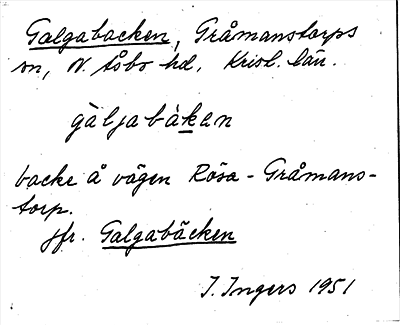 Galgabacken, Gråmanstorps
sn, N. Åsbo hd, Krist. län.
gàljabàkan
backe å vägen Rösa - Gråmans-
torp.
jfr. Galgabäcken
I. Ingers 1951